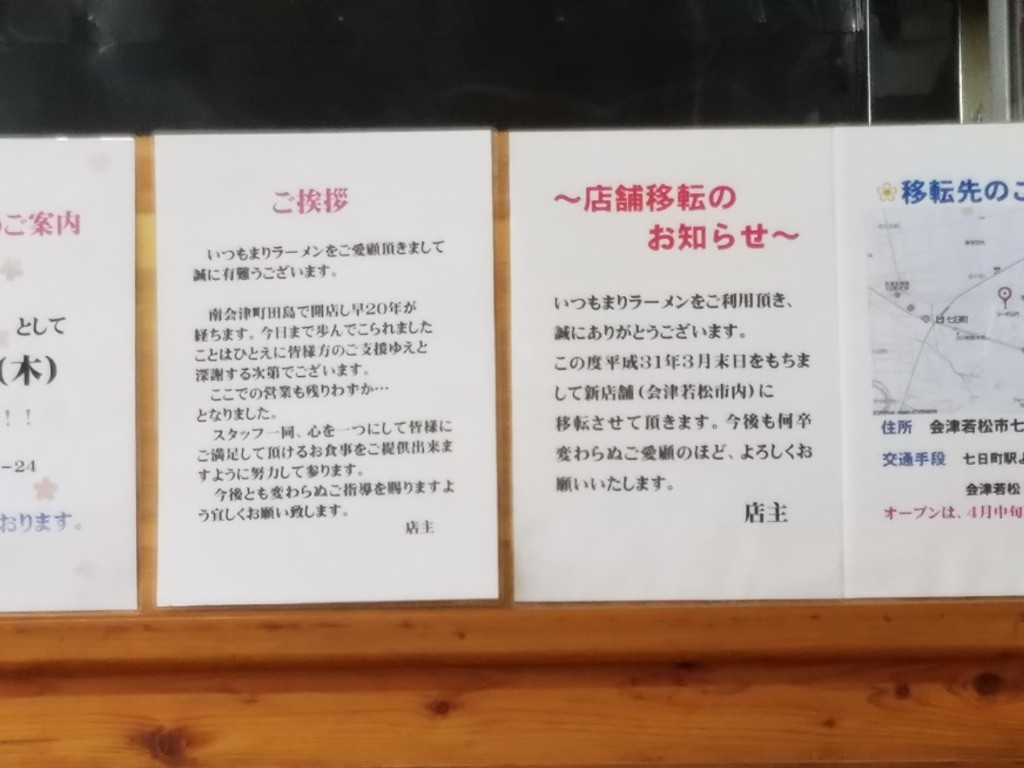 のご案内
として
(木)
！！
-24
おります。
ご挨拶
いつもまりラーメンをご愛顧頂きまして
誠に有難うございます。
南会津町田島で開店し早20年が
経ちます。今日まで歩んでこられました
ことはひとえに皆様方のご支援ゆえと
深謝する次第でございます。
ここでの営業も残りわずか…
となりました。
スタッフ一同、心を一つにして皆様に
ご満足して頂けるお食事をご提供出来ま
すように努力して参ります。
今後とも変わらぬご指導を賜りますよ
う宜しくお願い致します。
店主
～店舗移転の
お知らせ～
いつもまりラーメンをご利用頂き、
誠にありがとうございます。
この度平成31年3月末日をもちま
して新店舗(会津若松市内)に
移転させて頂きます。今後も何卒
変わらぬご愛顧のほど、よろしくお
願いいたします。
店主
移転先のご
七日町
住所 会津若松市七
交通手段 七日町駅よ
会津若松
オープンは、4月中旬